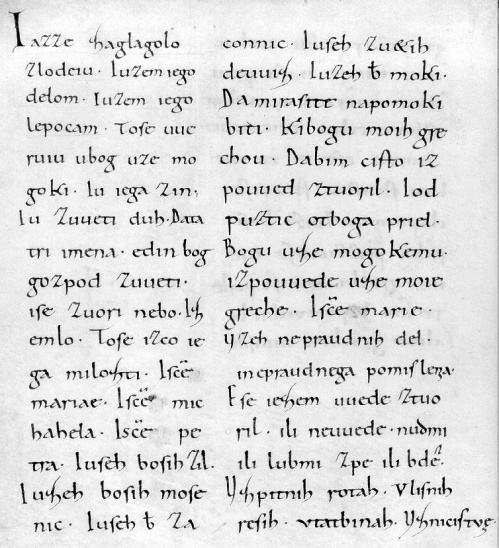 Iazze zaglagolo
zlodeiu. Iuzem iego
delom. Iuzem iego
lepocam. Tose uue
ruiu ubog uze mo
goki. Iu iega zin,
Iu zuueti duh. Data
tri imena. edin bog
gozpod zuueti.
ise zuori nebo. Iz
emlo. Tose izco ie
ga milozti. Isc̄e
mariae. Isc̄e mic
hahela. Isc̄e pe
tra. Iuseh bosih zil.
Iuzeh bosih mose
nic. Iuseh b̄ za
connic. Iuseh zu&ih
deuuiz. Iuzeh b̄ moki.
Da mirasite napomoki
biti. Kibogu moih gre
chou. Dabim cisto iz
pouued ztuoril. Iod
puztic otboga priel.
Bogu uze mogokemu.
izpouuede uze moie
greche. Isc̄e marie.
Uzeh nepraudnih del.
inepraudnega pomislena.
Ese iezem uuede ztuo
ril. ili neuuede. nudmi
ili lubmi zpe ili bdē.
Uzpitnih rotah. Vlisnih
resih. vtatbinah. Uznicistve.